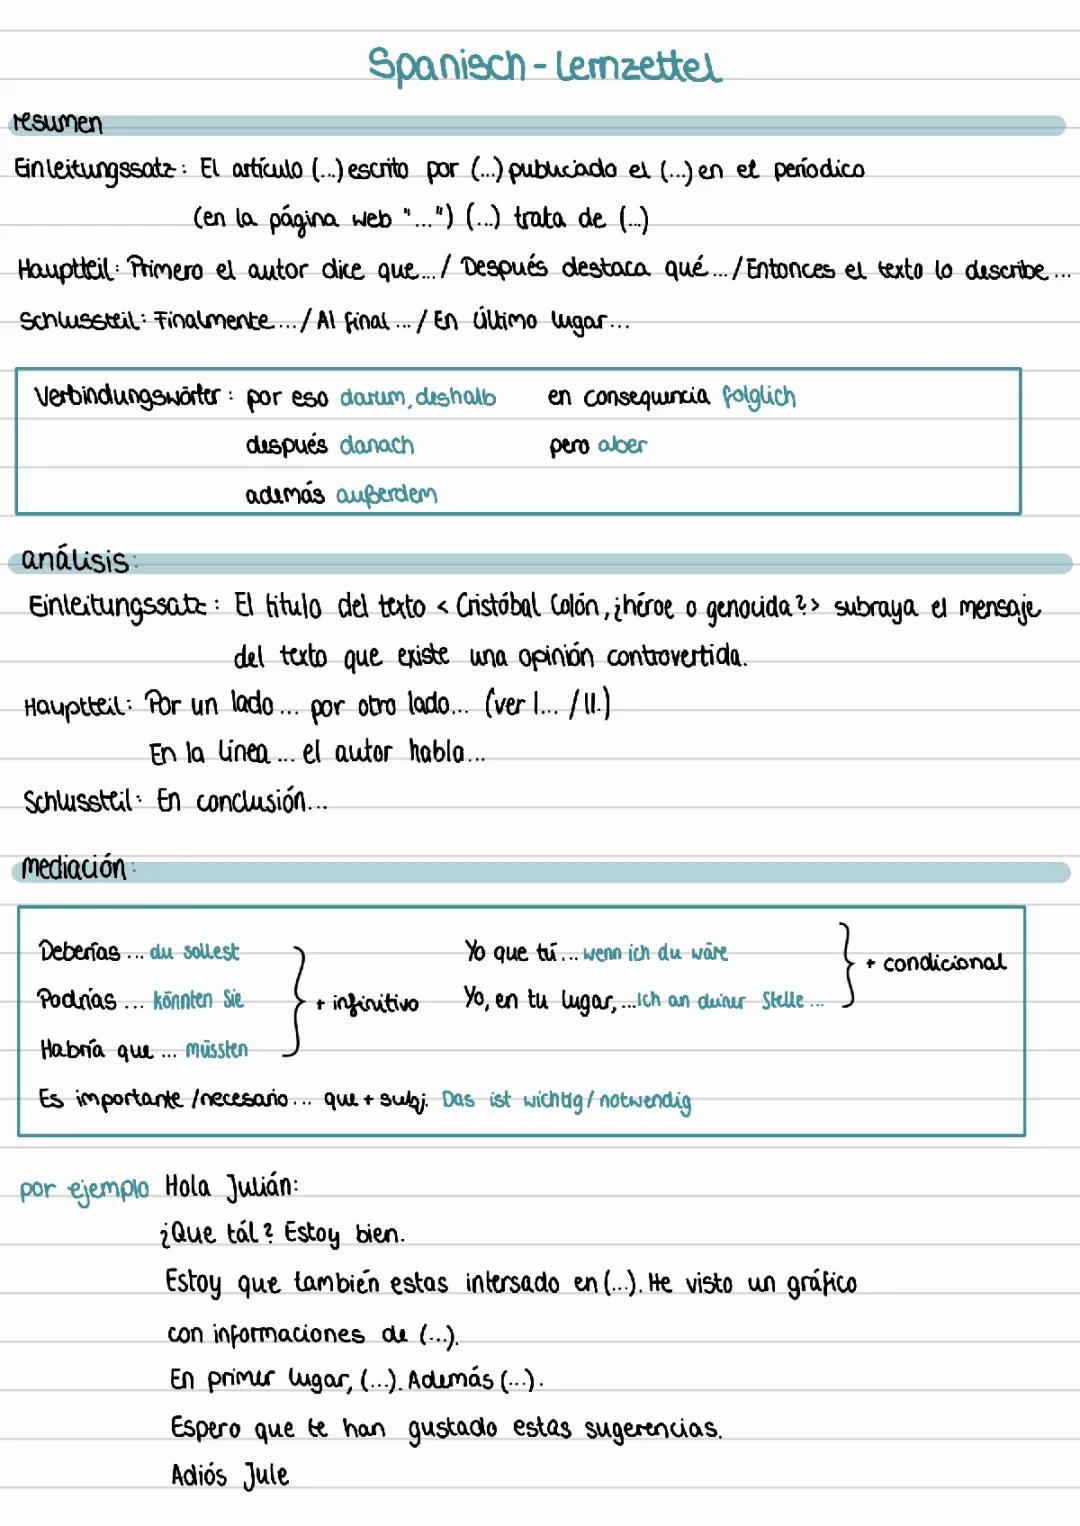 Spanisch - Lernzettel
resumen
Einleitungssatz: El artículo (...) escrito por (...) publiciado el (...) en el períodico
(en la página web "...") (...) trata de (...)
Hauptteil: Primero el autor dice que... / Después destaca qué ... / Entonces el texto lo describe ...
Schlussteil: Finalmente ... / Al final ... / En último lugar...
Verbindungswörter: por eso darum, deshalb en consequencia folglich
después danach pero aber
además außerdem
análisis:
Einleitungssatz: El título del texto < Cristóbal Colón, ¿héroe o genocida?> subraya el mensaje
del texto que existe una opinión controvertida.
Hauptteil: Por un lado... por otro lado... (ver l... / ll.)
En la línea ... el autor habla...
Schlussteil: En conclusión...
mediación:
Deberías ... du sollest Yo que tú... wenn ich du wäre
+ condicional
Podrías ... könnten Sie + infinitivo Yo, en tu lugar, ... Ich an deiner Stelle ...
Habría que ... müssten
Es importante /necesario ... que + subj. Das ist wichtig / notwendig
por ejemplo Hola Julián:
¿Que tál? Estoy bien.
Estoy que también estas intersado en (...). He visto un gráfico
con informaciones de (...).
En primer lugar, (...). Además (...).
Espero que te han gustado estas sugerencias.
Adiós Jule